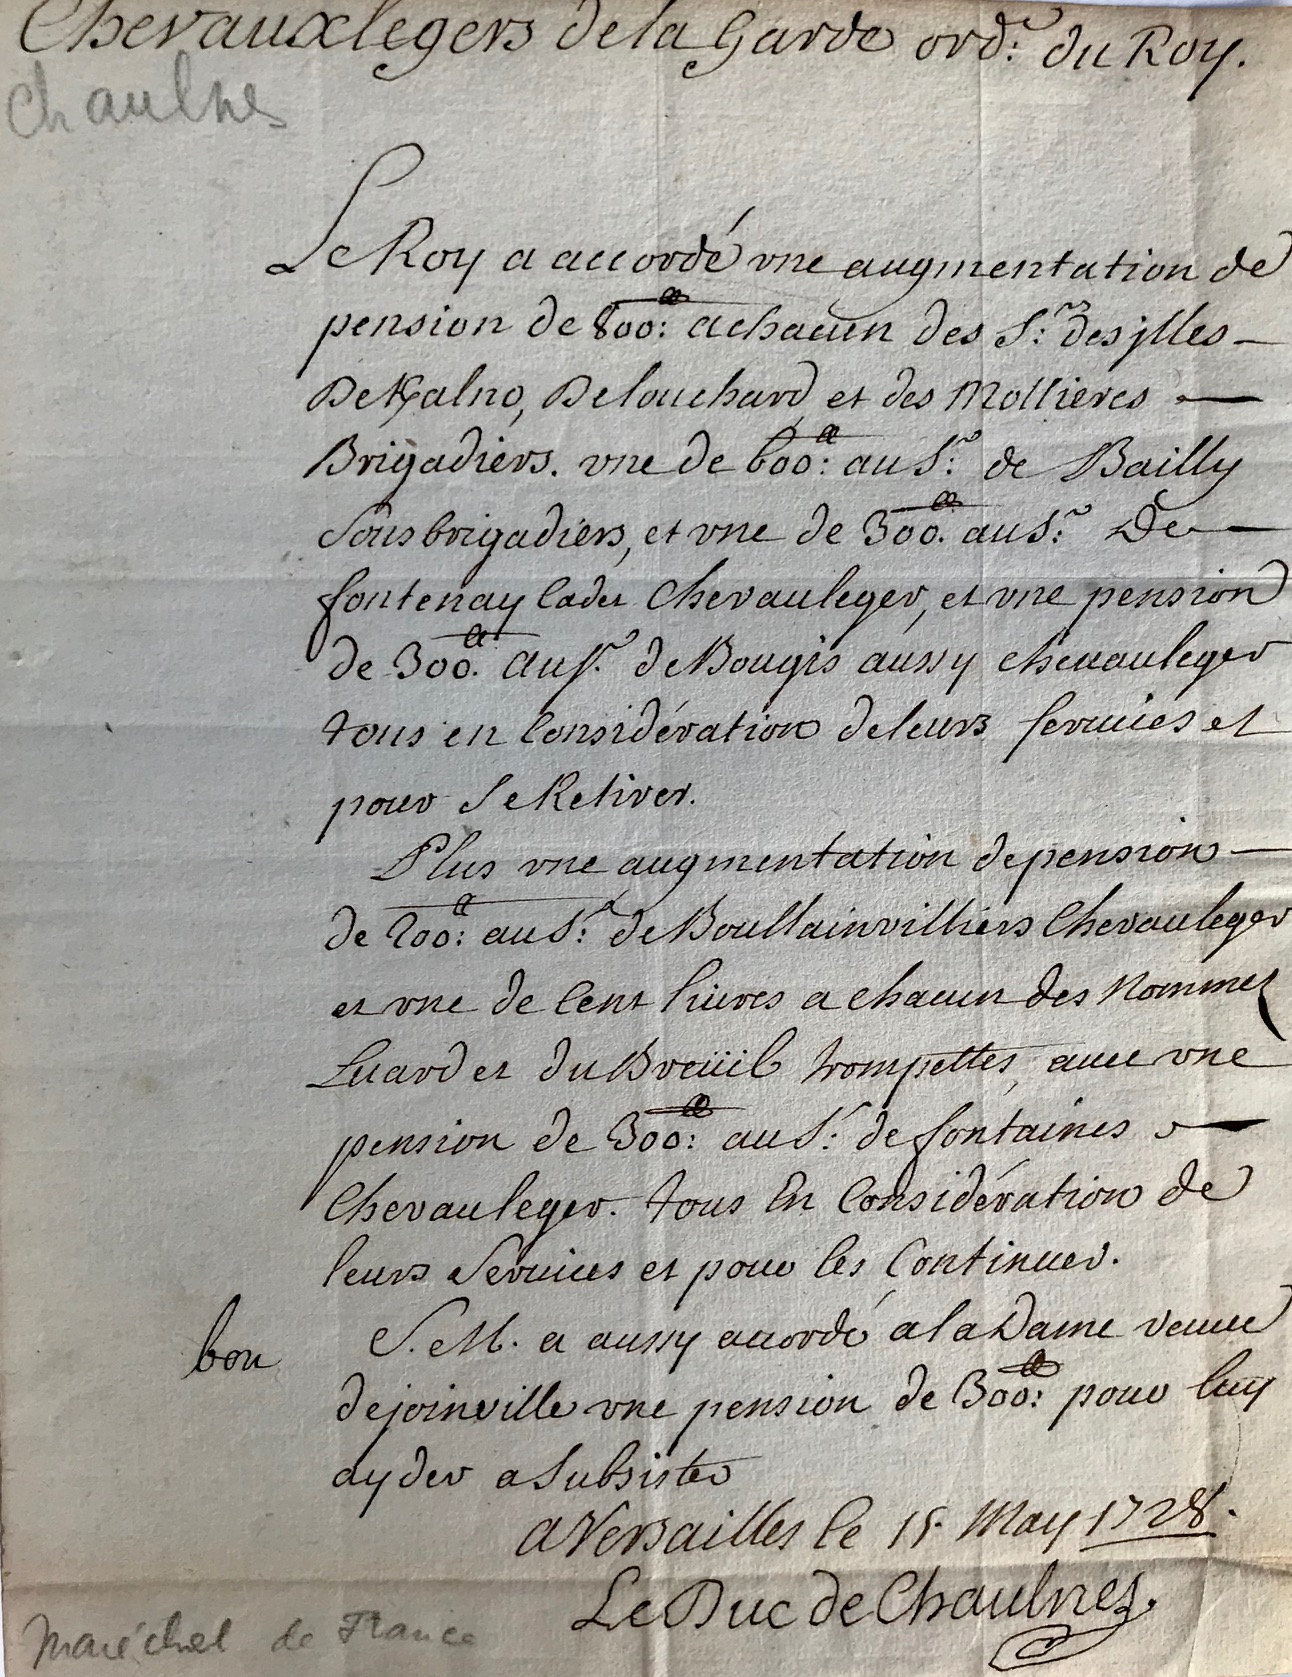 Chevauxlegers de la Garde ord.^re du Roy.
Chaulnes
Le Roy a accordé vne augmentation de
pension de 800:^tt a chacun des S.^rs des jlles
De Kalno, Delouchard et des Mollieres
Brigadiers. vne de 600:^tt au S.^r de Bailly
Sousbrigadiers, et vne de 300.^tt au S.^r De
fontenay Cadet Chevauleger, et vne pension
de 300.^tt au S.^r de Bougis aussy chevauleger
tous en Considération de leurs services et
pour se Retirer.
Plus vne augmentation de pension
de 200:^tt au S.^r de Boullainvilliers Chevauleger
et vne de Cent liures a chacun des Nommez
Luard et du Breüil trompettes, auec vne
pension de 300:^tt au S.^r de fontaines
Chevauleger. tous En Considération de
leurs Seruices et pour les Continuer.
bon
S. M. a aussy accordé a la Dame veuue
de joinville vne pension de 300:^tt pour luy
ayder a Subsister
A Versailles le 15. May 1728.
Le Duc de Chaulnes
Maréchal de France